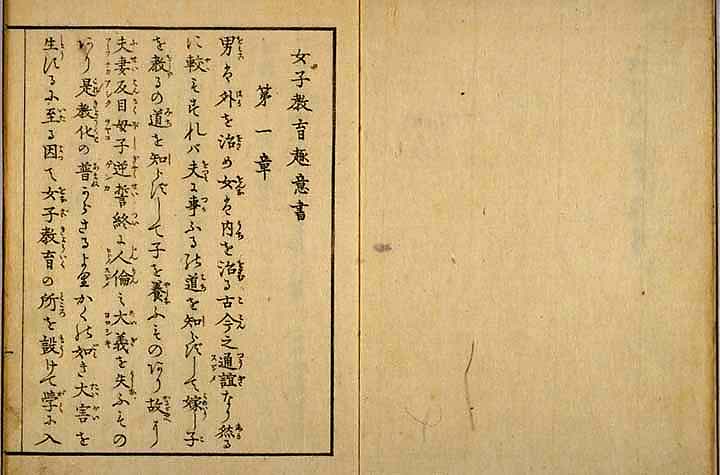 女子教育趣意書
第一章
男は外を治め女は内を治る古今之通誼なり然る
に較もすれバ夫に事ふるの道を知らずして嫁し子
を教るの道を知らずして子を養ふものあり故
夫妻反目母子逆誓終に人倫之大義を失ふもの
あり是教化の普からざるよりかくの如き大害を
生ずるに至る因て女子教育の所を設けて学に入